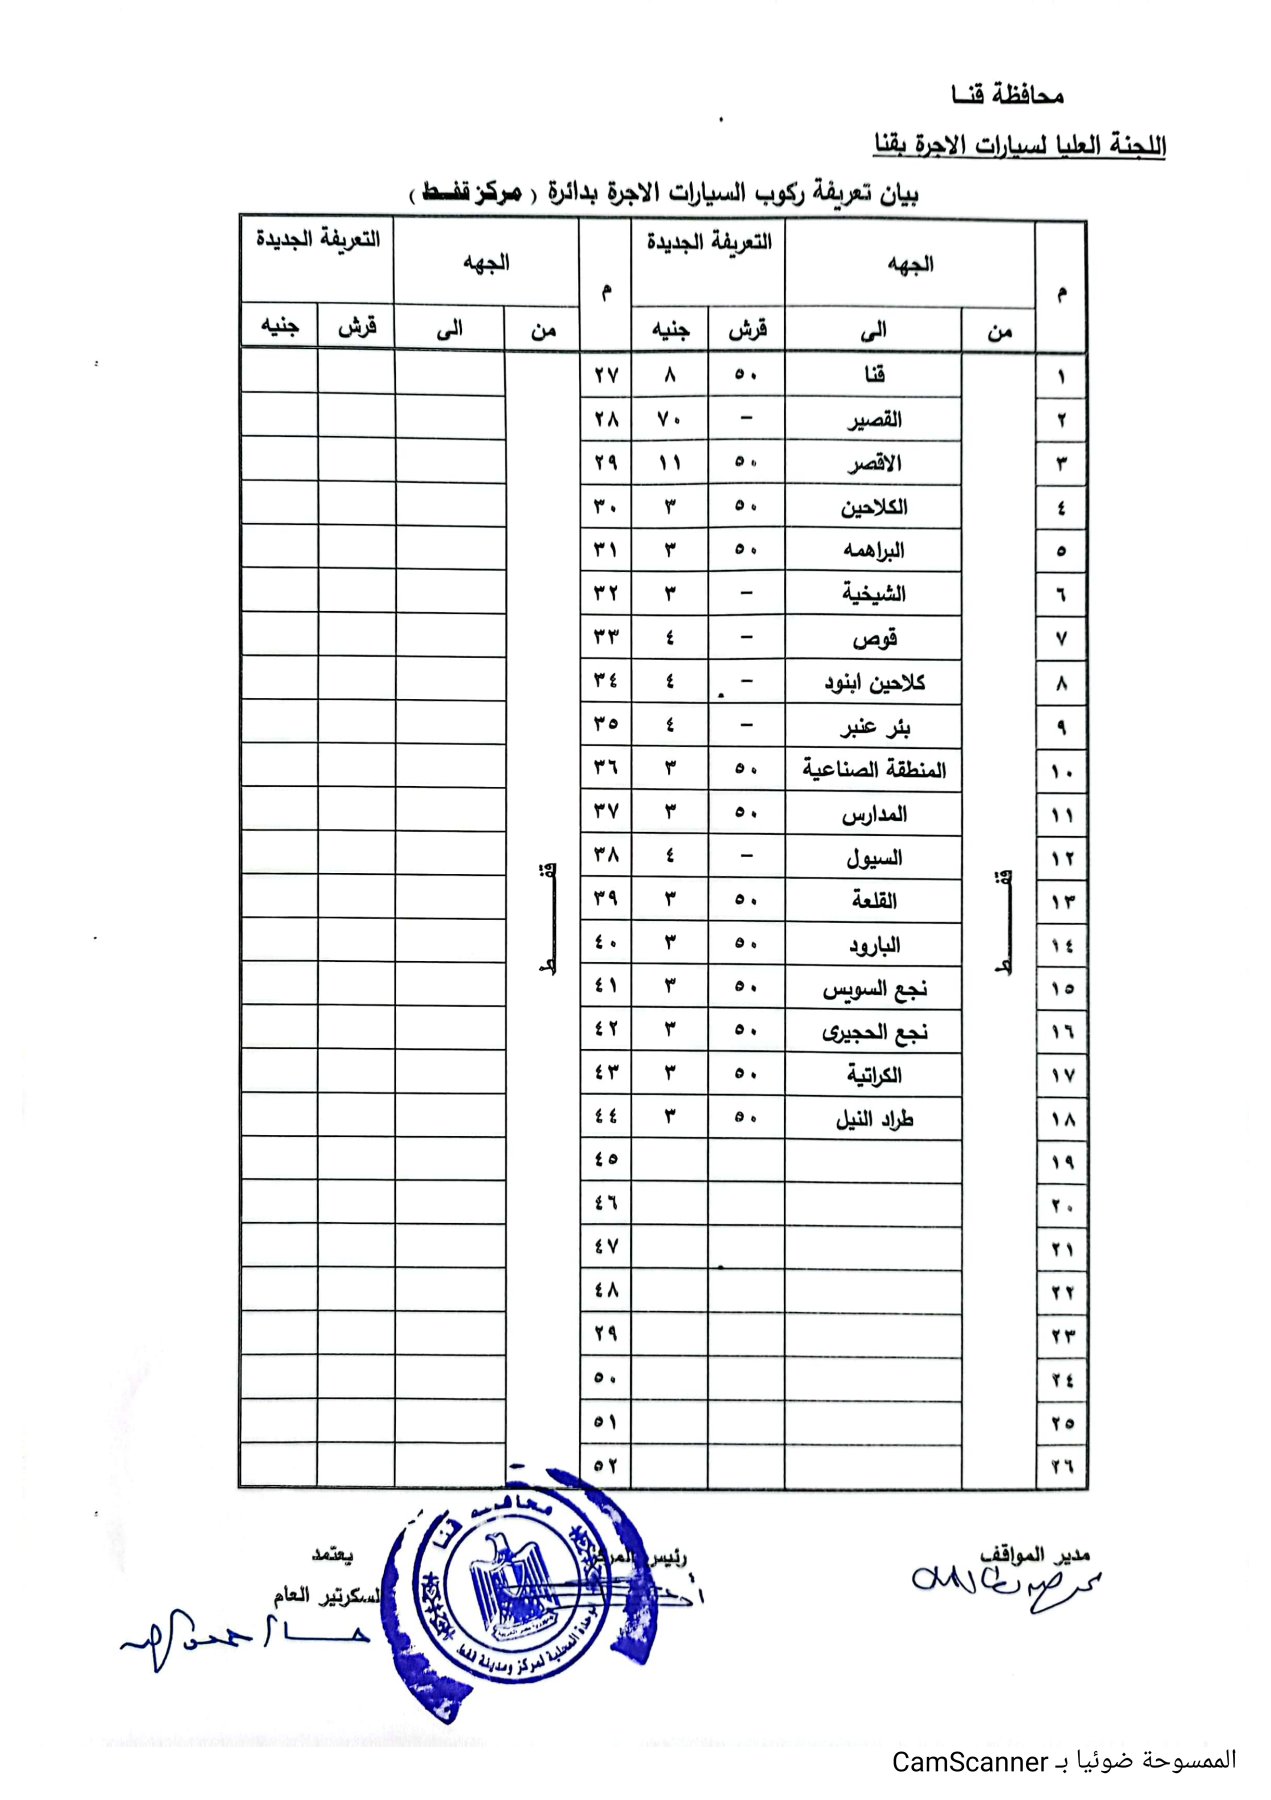 محافظة قنا
اللجنة العليا لسيارات الاجرة بقنا
بيان تعريفة ركوب السيارات الاجرة بدائرة ( مركز قفط )
م الجهه التعريفة الجديدة م الجهه التعريفة الجديدة
من الى قرش جنيه من الى قرش جنيه
قفط قفط
١ قنا ٥٠ ٨ ٢٧
٢ القصير – ٧٠ ٢٨
٣ الاقصر ٥٠ ١١ ٢٩
٤ الكلاحين ٥٠ ٣ ٣٠
٥ البراهمه ٥٠ ٣ ٣١
٦ الشيخية – ٣ ٣٢
٧ قوص – ٤ ٣٣
٨ كلاحين ابنود – ٤ ٣٤
٩ بئر عنبر – ٤ ٣٥
١٠ المنطقة الصناعية ٥٠ ٣ ٣٦
١١ المدارس ٥٠ ٣ ٣٧
١٢ السيول – ٤ ٣٨
١٣ القلعة ٥٠ ٣ ٣٩
١٤ البارود ٥٠ ٣ ٤٠
١٥ نجع السويس ٥٠ ٣ ٤١
١٦ نجع الحجيرى ٥٠ ٣ ٤٢
١٧ الكراتية ٥٠ ٣ ٤٣
١٨ طراد النيل ٥٠ ٣ ٤٤
١٩ ٤٥
٢٠ ٤٦
٢١ ٤٧
٢٢ ٤٨
٢٣ ٢٩
٢٤ ٥٠
٢٥ ٥١
٢٦ ٥٢
مدير المواقف رئيس المركز يعتمد
السكرتير العام
محافظة قنا
الوحدة المحلية لمركز ومدينة قفط
جمهورية مصر العربية
الممسوحة ضوئيا بـ CamScanner